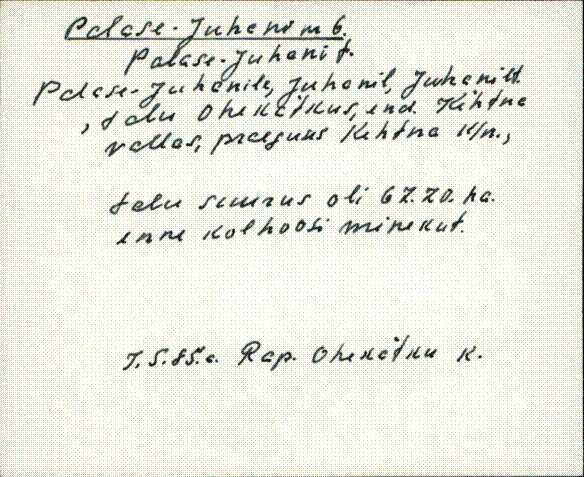 Palase-Juhani m 6.
Palase-Juhani t.
Palase-Juhanile, Juhanil, Juhanilt
, talu Ohekatkus, end. Kehtna
vallas, praeguus Kehtna k/n.,
talu suurus oli 67.70. ha.
enne kolhoosi minekut.
Rap. Ohekatku k.